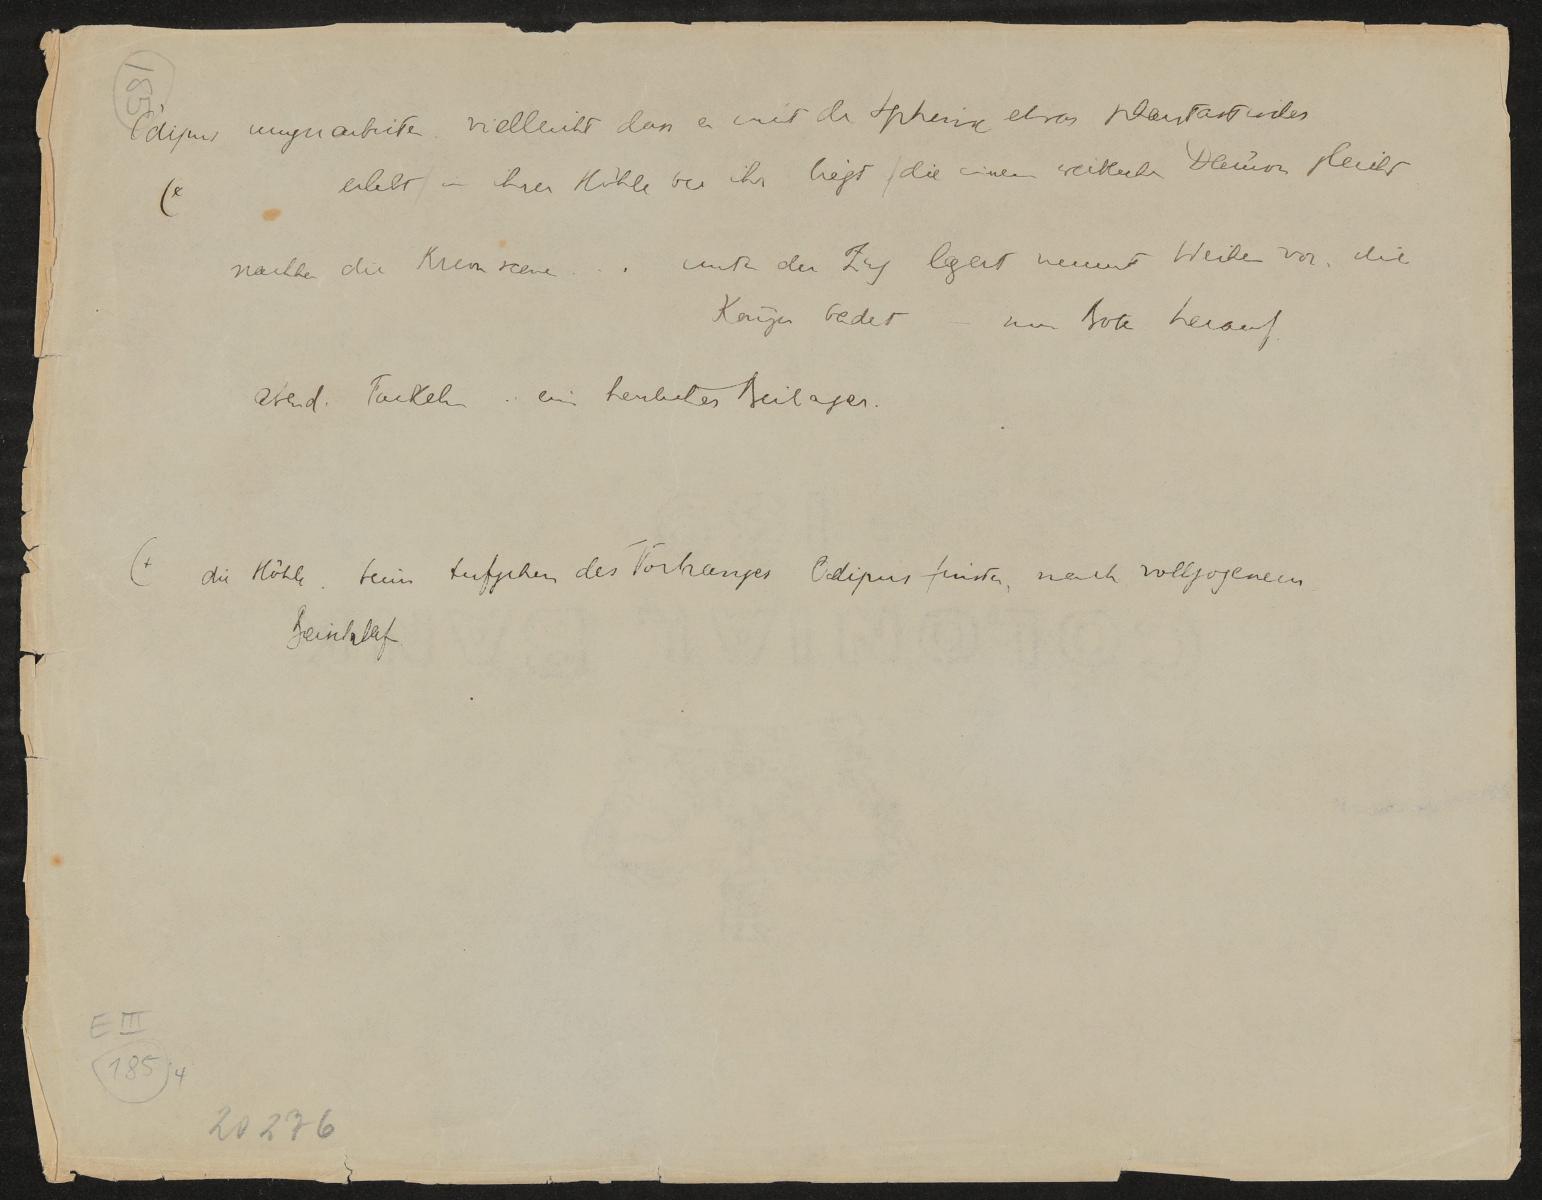 185
Ödipus umzuarbeiten. vielleicht dass er mit der Sphinx etwas phantastisches
(* erlebt / in ihrer Höhle bei ihr liegt / die einem weiblichen Dämon gleicht
nachher die Kreonscene ... unten der Zug lagert nimmt Weihen vor. die
Königin badet – nun Bote herauf.
Abend. Fackeln .. ein herrliches Beilager.
(+ die Höhle. beim Aufgehen des Vorhanges Ödipus finster, nach vollzogenem
Beischlaf
E III
185 4
20276